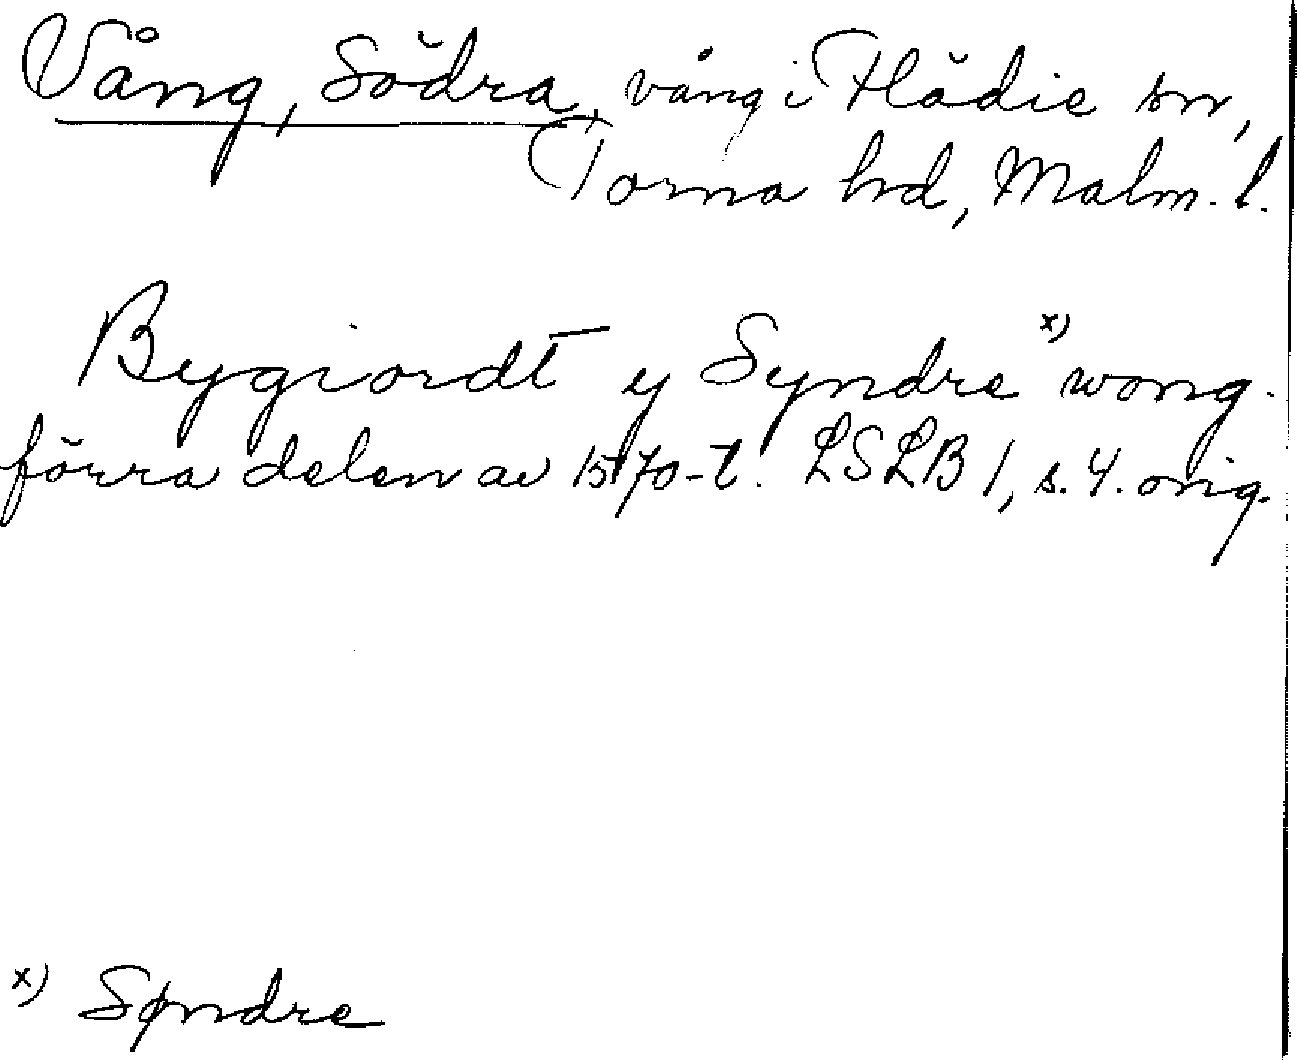 Vång, Södra, vång i Flädie sn,
Torna hd, Malm. l.
Bygiordt y Syndre x) wong.
förra delen av 1570-t. LSLB 1, s. 4. orig.
x) Søndre